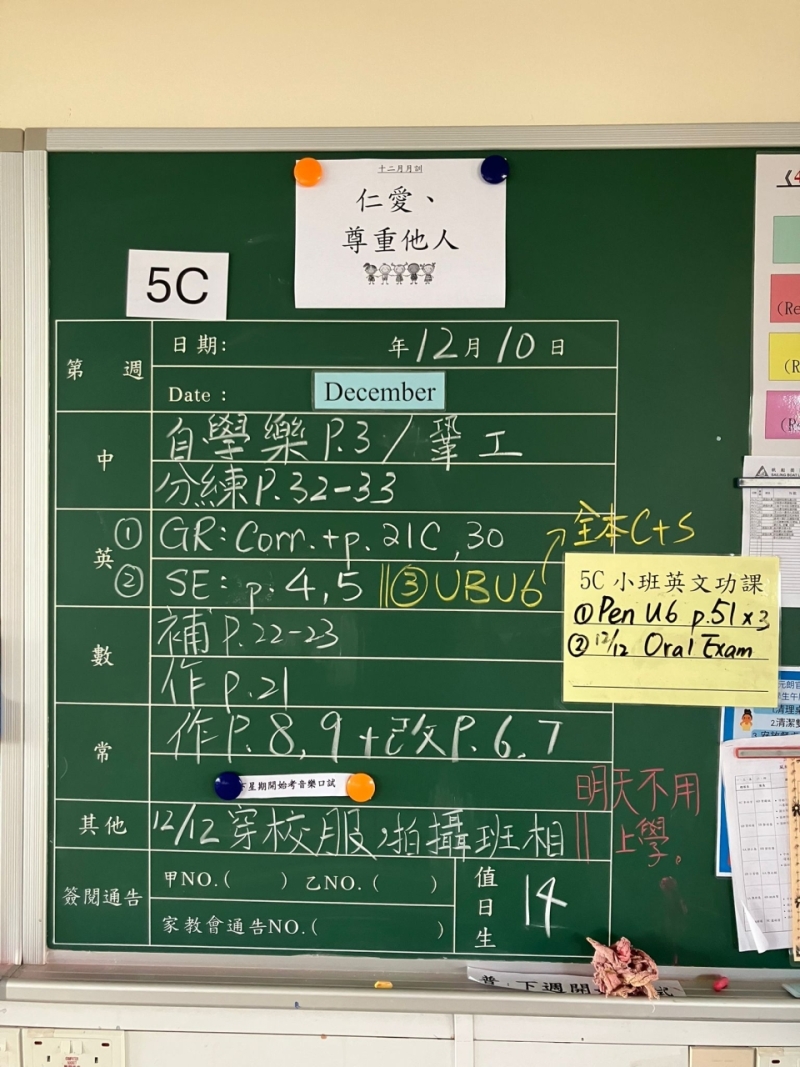 十二月月訓
仁愛、
尊重他人
5C
第 週
日期: 年12月10日
Date : December
中
自學樂 P.3 / 鞏工
分練P.32-33
英
① GR: Corr.+p. 21C, 30
② SE: p. 4, 5 ||③UBU6
全本C+S
5C 小班英文功課
①Pen U6 p.51 x3
②12/12 Oral Exam
數
補 P.22-23
作 P.21
常
作P.8, 9 + 改P.6, 7
星期開始考音樂口試
其他
12/12 穿校服,拍攝班相
明天不用
上學。
簽閱通告
甲NO.( ) 乙NO.( )
家教會通告NO.( )
值日生
14
普
下週開
(Re
(R
(R4
2.清潔